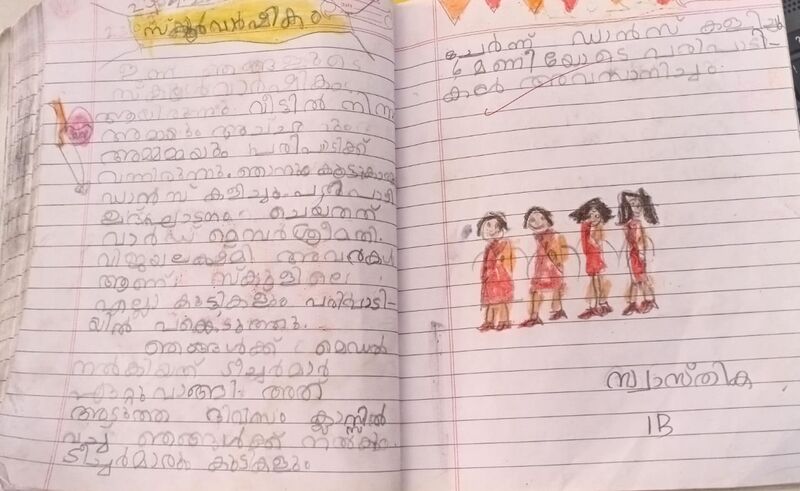 സ്കൂൾവാർഷികം
ഇന്ന് ഞങ്ങളുടെ
സ്കൂൾവാർഷികം
ആയിരുന്നു. വീട്ടിൽ നിന്ന്
അമ്മയും അച്ചനും
അമ്മമ്മയും പരിപാടിക്ക്
വന്നിരുന്നു. ഞാനും കൂട്ടുകാരും
ഡാൻസ് കളിച്ചു. പരിപാടി
ഉദ്ഘാടനം ചെയ്തത്
വാർഡ് മെമ്പർ ശ്രീമതി.
വിജയലക്ഷ്മി അവർകൾ
ആണ്. സ്കൂളിലെ
എല്ലാ കുട്ടികളും പരിപാടി-
യിൽ പങ്കെടുത്തു.
ഞങ്ങൾക്ക് മെഡൽ
നൽകിയത് ടീച്ചർമാർ
ഏറ്റുവാങ്ങി. അത്
അടുത്ത ദിവസം ക്ലാസ്സിൽ
വച്ച് ഞങ്ങൾക്ക് നൽകും.
ടീച്ചർമാരും കുട്ടികളും
ചേർന്ന് ഡാൻസ് കളിച്ചു
6 മണിയോടെ പരിപാടി-
കൾ അവസാനിച്ചു.
സ്വാസ്തിക
1B